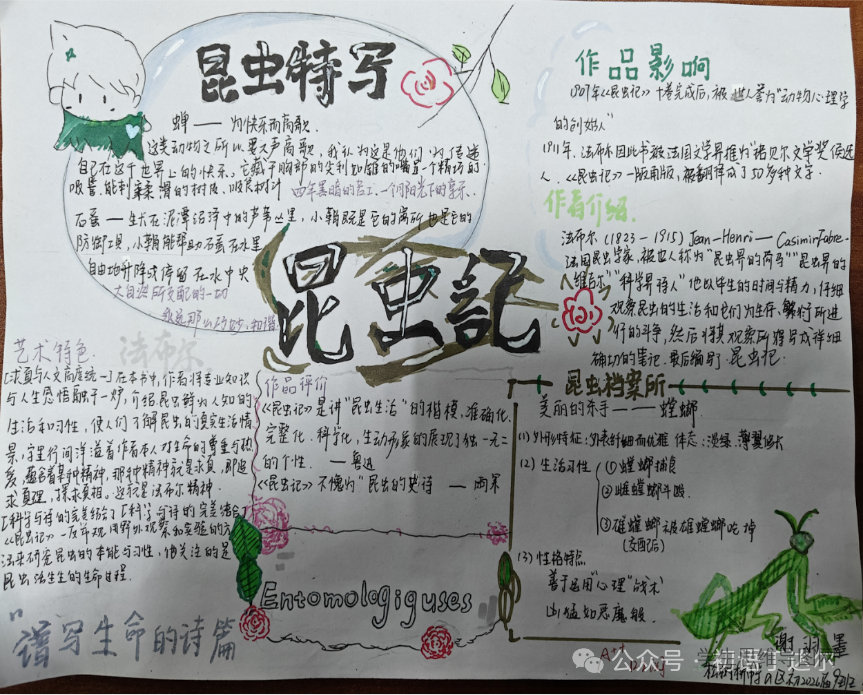 昆虫特写
蝉——为快乐而高歌.
这类动物之所以要大声高歌,我认为这是他们为传递
自己在这个世界上的快乐。它藏于胸部的尖利如锥的嘴是一个精巧的
吸管.能刺柔滑的树皮、吸食树汁 四年黑暗的苦工、一个月阳光下的享乐.
石蚕——生长在泥潭沼泽中的芦苇丛里,小鞘既是它的寓所也是它的
防御工具,小鞘能帮助石蚕在水里
自由地升降或停留在水中央
大自然所支配的一切
昆虫記
作品影响
1907年《昆虫记》十卷完成后,被世人誉为"动物心理学
的创始人"
1911年、法布尔因此书被法国文学界推为"诺贝尔文学奖候选
人.《昆虫记》一版再版,被翻译成了50多种文字.
作者介绍.
法布尔(1823-1915)Jean-Henri—CasimirFabre-
法国昆虫学家,被世人称为"昆虫界的荷马""昆虫界的
维吉尔""科学界诗人"他以毕生的时间与精力,仔细
观察昆虫的生活和它们为生存、繁衍所进
行的斗争,然后将其观察所得写成详细
确切的笔记.最后编写了昆虫记.
艺术特色.
法布尔
[求真与人文高度统一]在本书中,作者将专业知识
与人生感悟融于一炉,介绍昆虫鲜为人知的
生活和习性,使人们了解昆虫的真实生活情
景,字里行间洋溢着作者本人对生命的尊重与热
爱,蕴含着某种精神,那种精神就是求真,即追
求真理,探求真相。这就是法布尔精神.
[科学与诗的完美结合]
《昆虫记》一反
法来研究昆虫的本能与习性,他关注的是
昆虫活生生的生命过程.
"谱写生命的诗篇
作品评价
《昆虫记》是讲"昆虫生活"的楷模,准确化.
完整化、科学化,生动形象的展现了独一无二
的个性. ——鲁迅
《昆虫记》不愧为"昆虫的史诗——雨果
Entomologiguses
昆虫档案所
美丽的杀手———螳螂
(1)外形特征:外表纤细而优雅 体态:淡绿.薄翼修长
(2)生活习性
①螳螂捕食
②雌螳螂斗殴
③雄螳螂被雌螳螂吃掉
(交配后)
(3)性格特点
善于运用"心理"战术
凶猛如恶魔般.
谢羽墨
公众号·